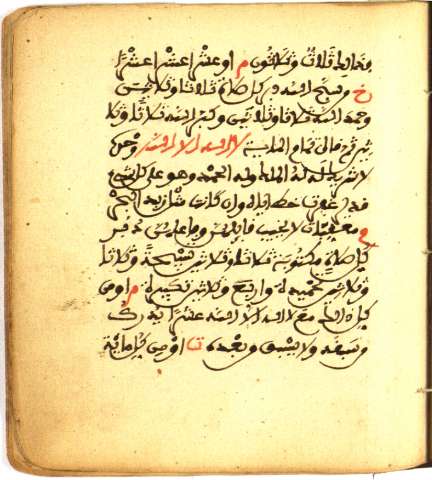 ثلاث وثلاثون م او عشرا عشرا عشرا
خ ومن سبح الله دبر كل صلاة ثلاثا وثلاثين
وحمد الله ثلاثا وثلاثين وكبر الله ثلاثا وثلا
ثين ثم قال تمام الماية لا اله الا الله وحده
لا شريك له له الملك وله الحمد وهو على كل شيء
غفرت خطاياه وان كانت مثل زبد البحر
م معقبات لا يخيب قايلهن وفاعلهن دبر
كل صلاة مكتوبة ثلاثا وثلاثين تسبيحة وثلاثا
وثلاثين تحميدة واربع وثلاثين تكبيرة م او من
كل ذلك مع لا اله الا الله عشرا يدرك
من سبقه ولا يسبق من بعده او من كل ماية